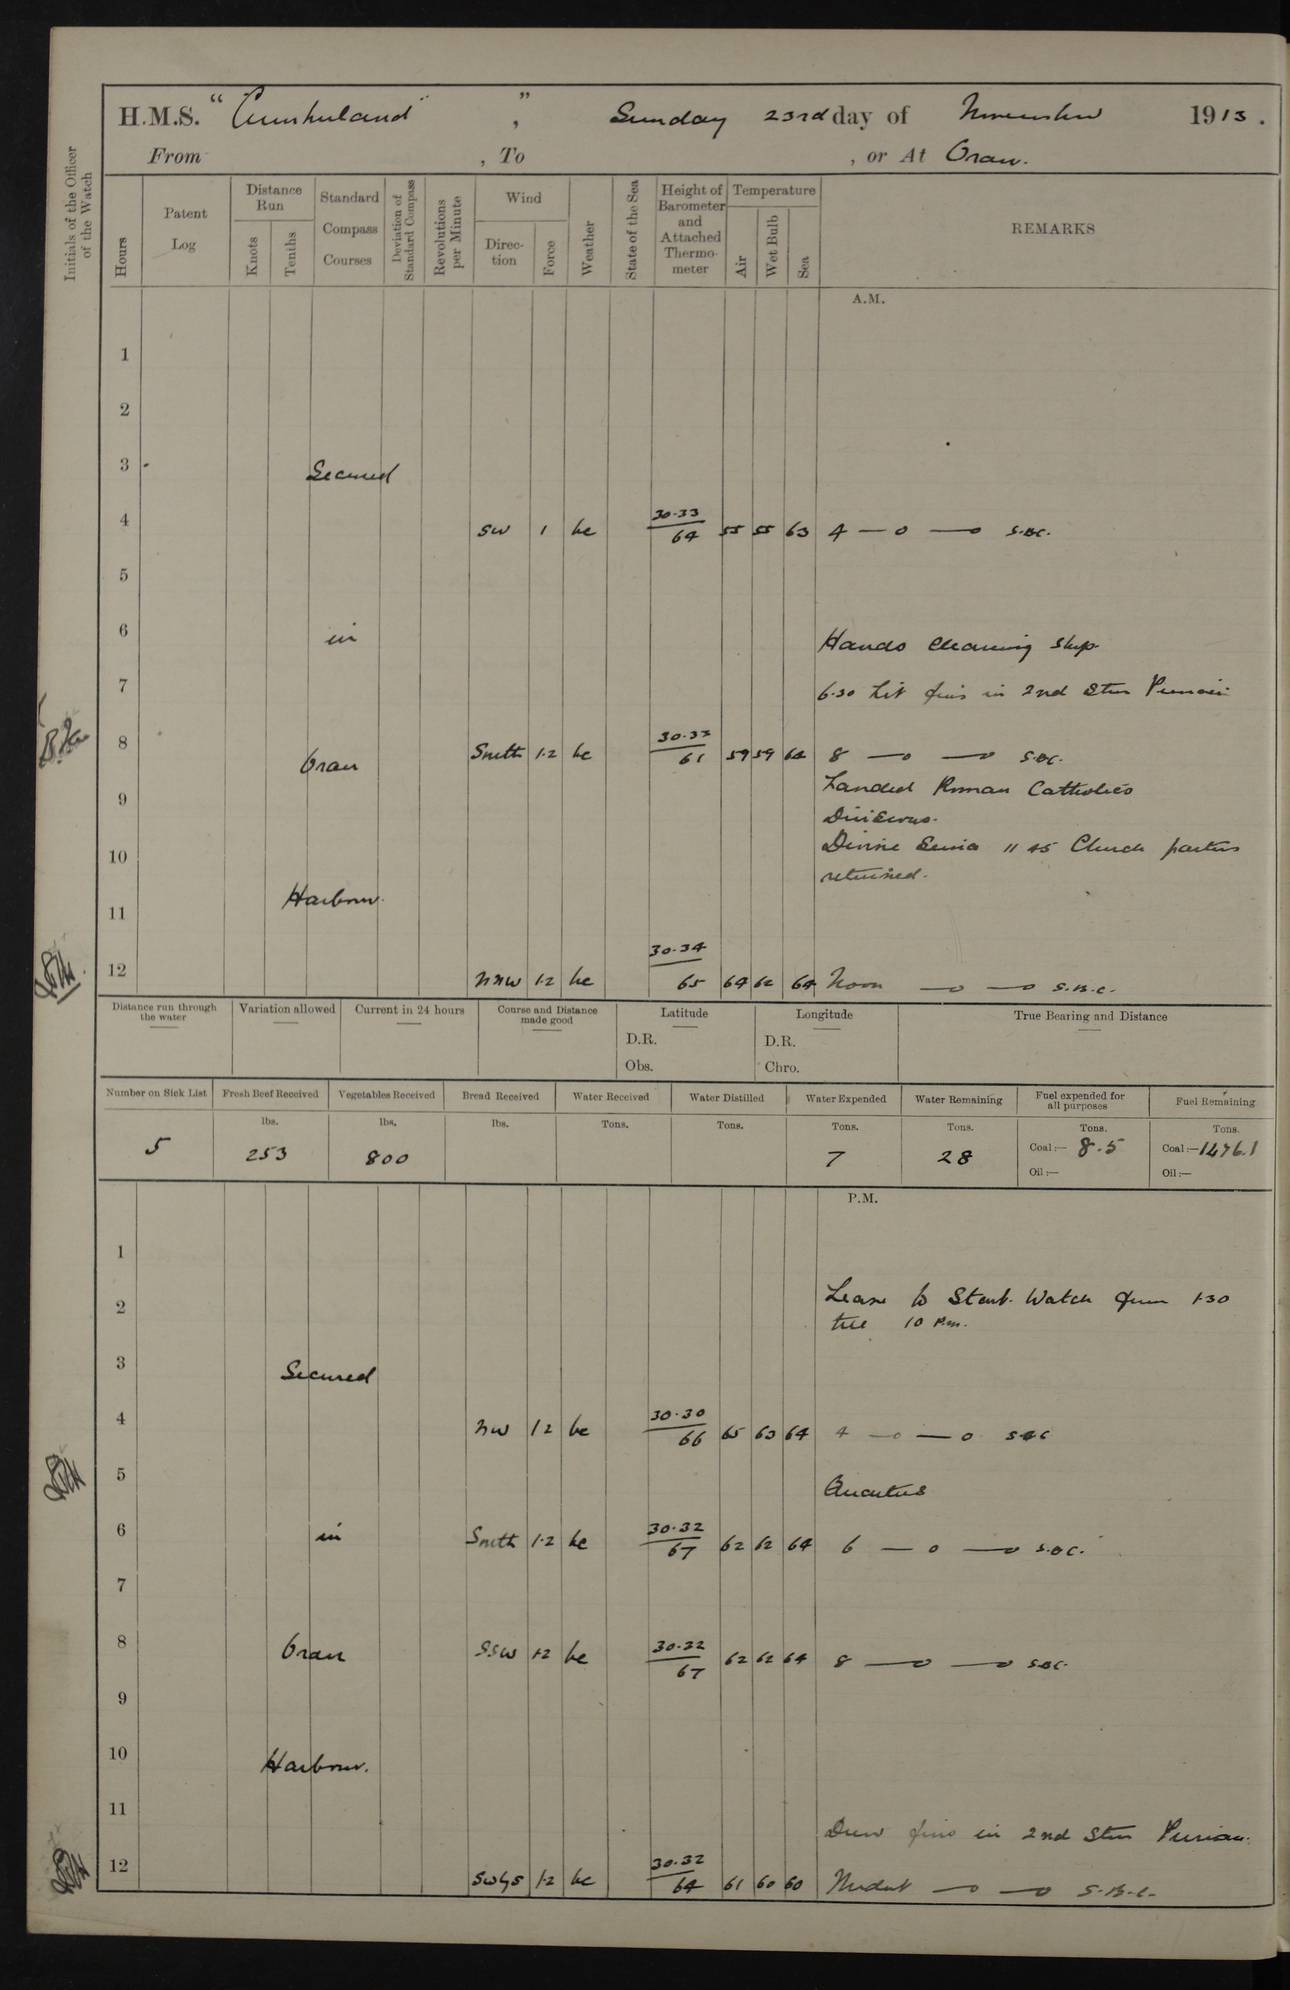 H.M.S. "Cumberland", Sunday 23rd day of November 1913.
From , To , or At Oran.
Initials of the Officer of the Watch
Hours
Patent Log
Distance Run
Knots
Tenths
Standard Compass Courses
Deviation of Standard Compass
Revolutions per Minute
Wind
Direction
Force
Weather
State of the Sea
Height of Barometer and Attached Thermometer
Temperature
Air
Wet Bulb
Sea
REMARKS
A.M.
1
2
3 Secured
4 SW 1 bc 30.33 64 55 55 63 4 — o — o S.B.C.
5
6 in Hands cleaning ship.
7 6.30 Lit fires in 2nd Stm Pinnace
8 Oran Smith 1.2 bc 30.32 61 59 59 64 8 — o — o S.B.C.
9 Landed Roman Catholics
Divisions.
10 Divine Service 11 45 Church parties
returned.
11 Harbour.
12 NNW 1.2 bc 30.34 65 64 62 64 Noon — o — o S.B.C.
Distance run through the water
Variation allowed
Current in 24 hours
Course and Distance made good
Latitude
D.R.
Obs.
Longitude
D.R.
Chro.
True Bearing and Distance
Number on Sick List
5
Fresh Beef Received
lbs.
253
Vegetables Received
lbs.
800
Bread Received
lbs.
Water Received
Tons.
Water Distilled
Tons.
Water Expended
Tons.
7
Water Remaining
Tons.
28
Fuel expended for all purposes
Tons.
Coal:— 8.5
Oil:—
Fuel Remaining
Tons.
Coal:— 1476.1
Oil:—
P.M.
1
2 Leave to Starb. Watch from 1.30
till 10 P.m.
3 Secured
4 NW 1.2 bc 30.30 66 65 63 64 4 — o — o S.B.C
5 Quarters
6 in Smith 1.2 bc 30.32 67 62 62 64 6 — o — o S.B.C.
7
8 Oran SSW 1.2 bc 30.32 67 62 62 64 8 — o — o S.B.C.
9
10 Harbour.
11 Drew fires in 2nd Stm Pinnace.
12 SWbyS 1.2 bc 30.32 64 61 60 60 Midnt — o — o S.B.C.